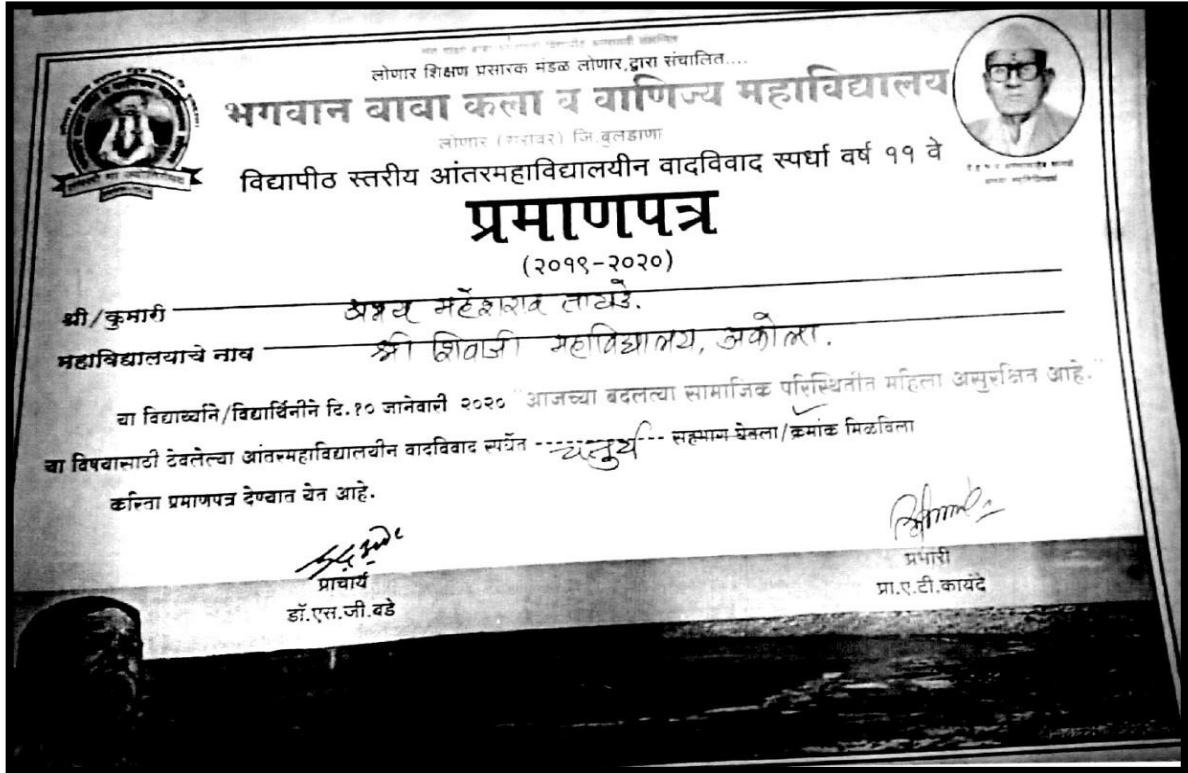 लोणार शिक्षण प्रसारक मंडळ लोणार,द्वारा संचालित....
भगवान बाबा कला व वाणिज्य महाविद्यालय
लोणार (सरोवर) जि.बुलडाणा
विद्यापीठ स्तरीय आंतरमहाविद्यालयीन वादविवाद स्पर्धा वर्ष ११ वे
प्रमाणपत्र
(२०१९-२०२०)
श्री/कुमारी महेशराव तायडे.
महाविद्यालयाचे नाव श्री शिवाजी महाविद्यालय, अकोला.
या विद्यार्थ्याने/विद्यार्थिनीने दि.१० जानेवारी २०२० "आजच्या बदलत्या सामाजिक परिस्थितीत महिला असुरक्षित आहे."
या विषयासाठी ठेवलेल्या आंतरमहाविद्यालयीन वादविवाद स्पर्धेत ---चतुर्थ--- सहभाग घेतला/क्रमांक मिळविला
करिता प्रमाणपत्र देण्यात येत आहे.
प्राचार्य
डॉ.एस.जी.बडे
प्रभारी
प्रा.ए.टी.कायंदे